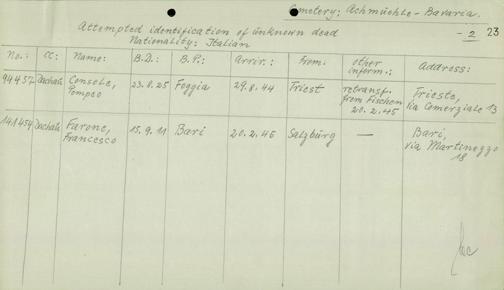 Cemetery: Achmuehle - Bavaria.
Attempted identification of unknown dead - 2 23
Nationality: Italian
No.: CC: Name: B.D.: B.P.: Arrir.: From: other inform.: Address:
94457 Dachau Console, Pompeo 23.8.25 Foggia 29.8.44 Triest retransf. from Fischen 20.2.45 Trieste, via Comerziale 13
141454 Dachau Farone, Francesco 15.9.11 Bari 20.2.45 Salzburg — Bari, via Martinezzo 18